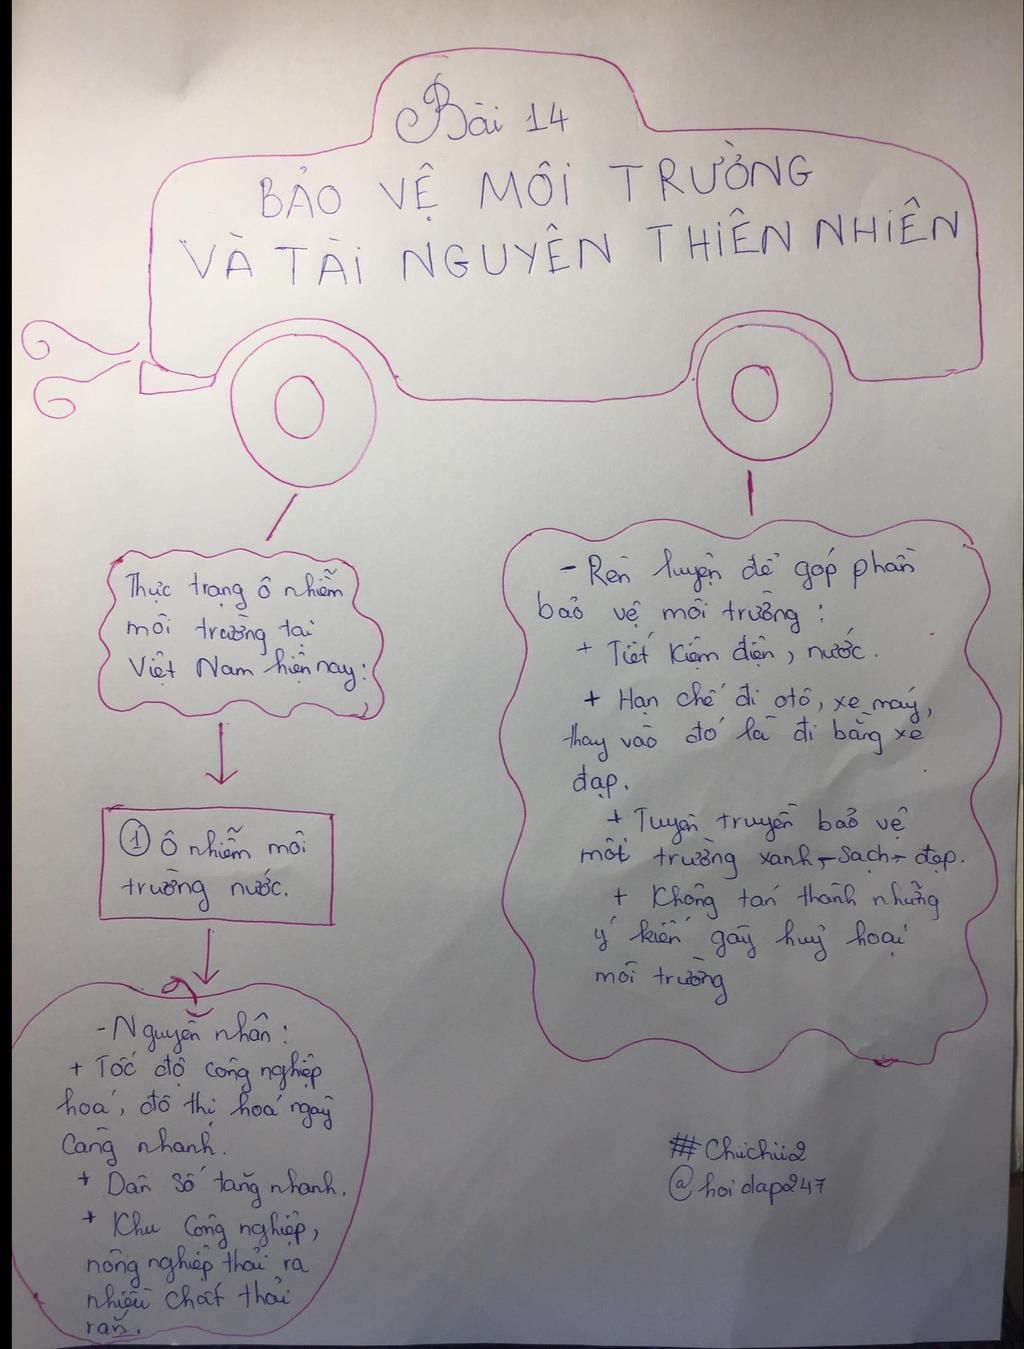 Bài 14
BẢO VỆ MÔI TRƯỜNG
VÀ TÀI NGUYÊN THIÊN NHIÊN
Thực trạng ô nhiễm
môi trường tại
Việt Nam hiện nay:
① Ô nhiễm môi
trường nước.
- Nguyên nhân:
+ Tốc độ công nghiệp
hoá, đô thị hoá ngày
càng nhanh.
+ Dân số tăng nhanh.
+ Khu công nghiệp,
nông nghiệp thải ra
nhiều chất thải
rắn.
- Rèn luyện để góp phần
bảo vệ môi trường:
+ Tiết kiệm điện, nước.
+ Hạn chế đi otô, xe máy,
thay vào đó là đi bằng xe
đạp.
+ Tuyên truyền bảo vệ
môi trường xanh - sạch - đẹp.
+ Không tán thành những
ý kiến gây huỷ hoại
môi trường
#Chiichii2
@hoidap247